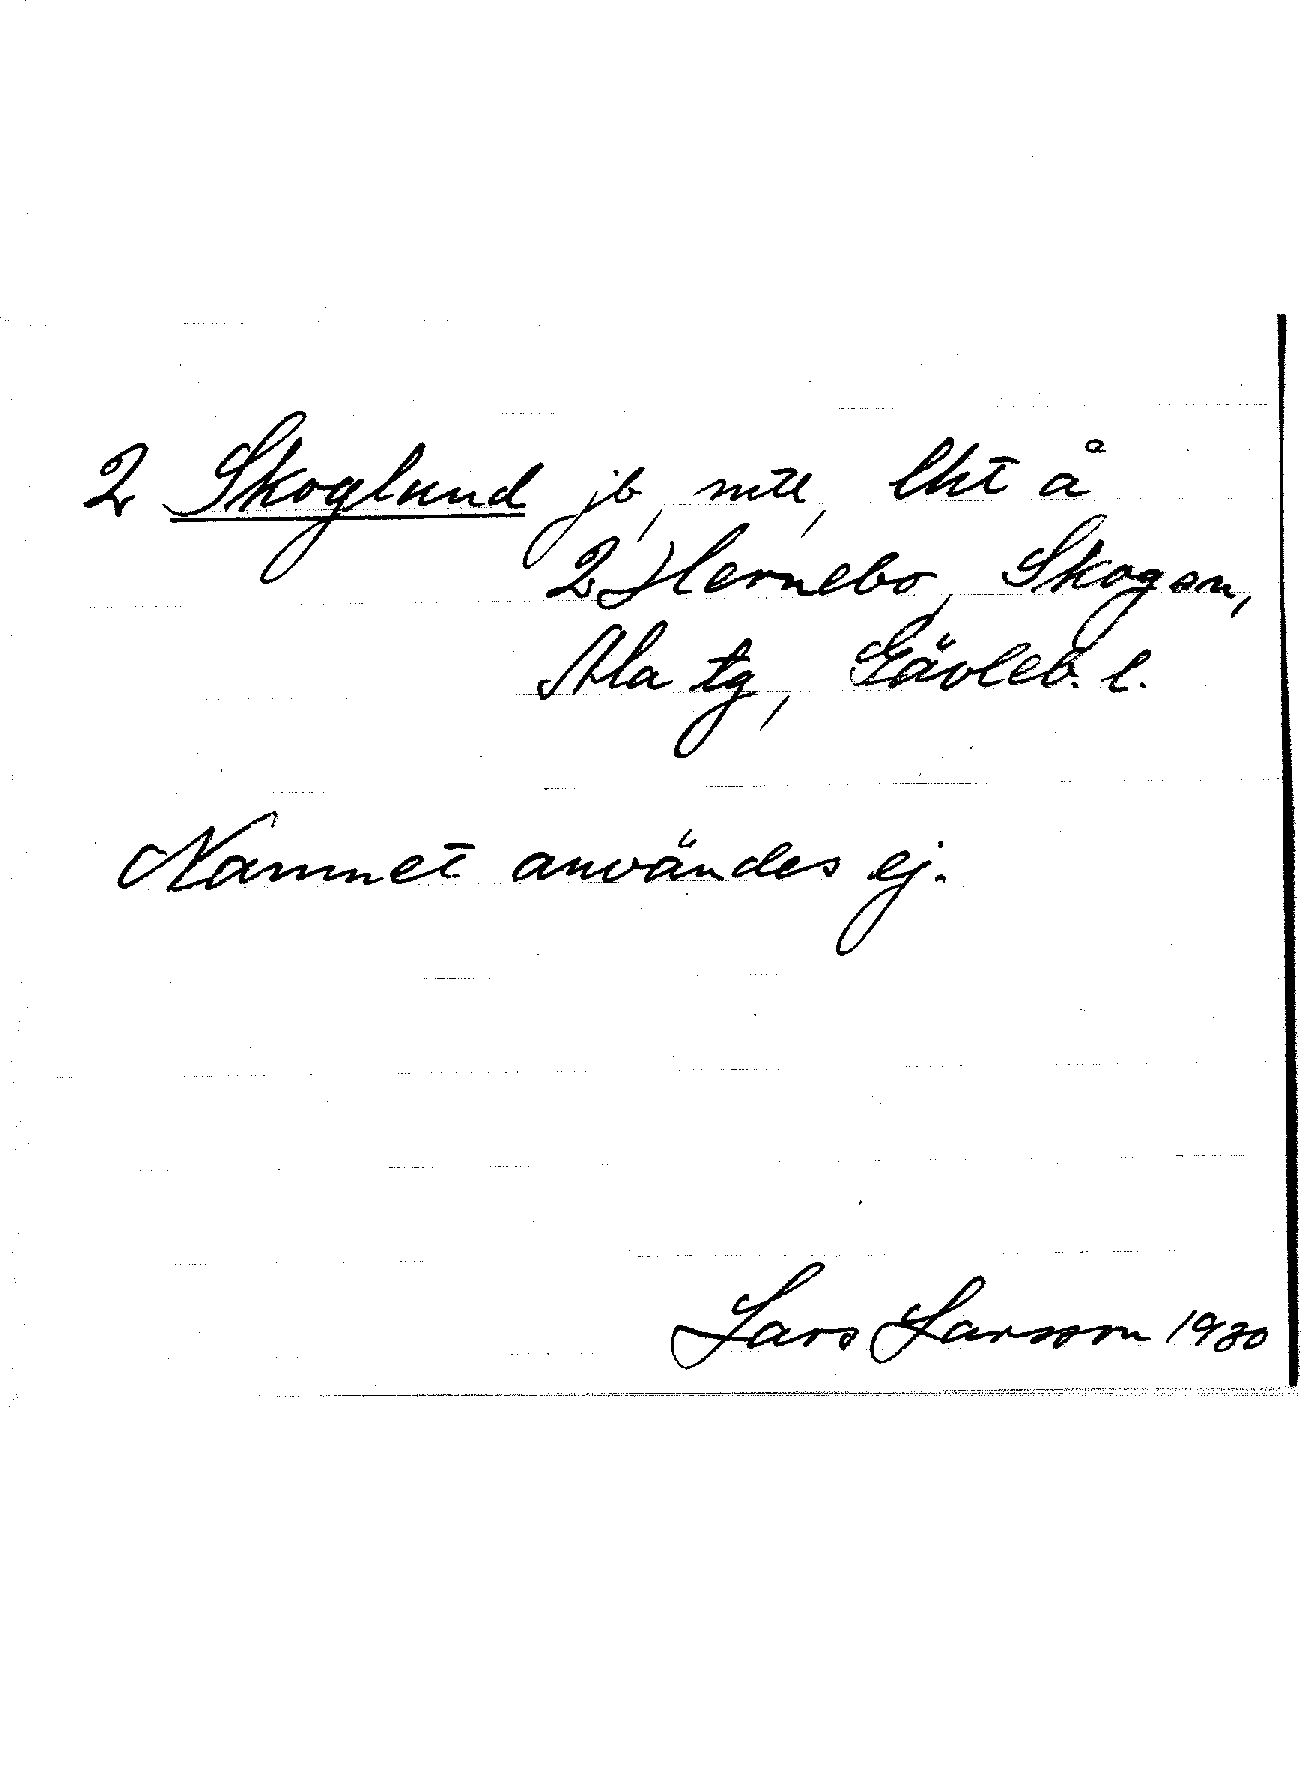 2 Skoglund jb, mtl, lht å
2 Hernebo, Skogson,
Ala tg, Gävleb. l.
Namnet användes ej.
Lars Larsson 1930